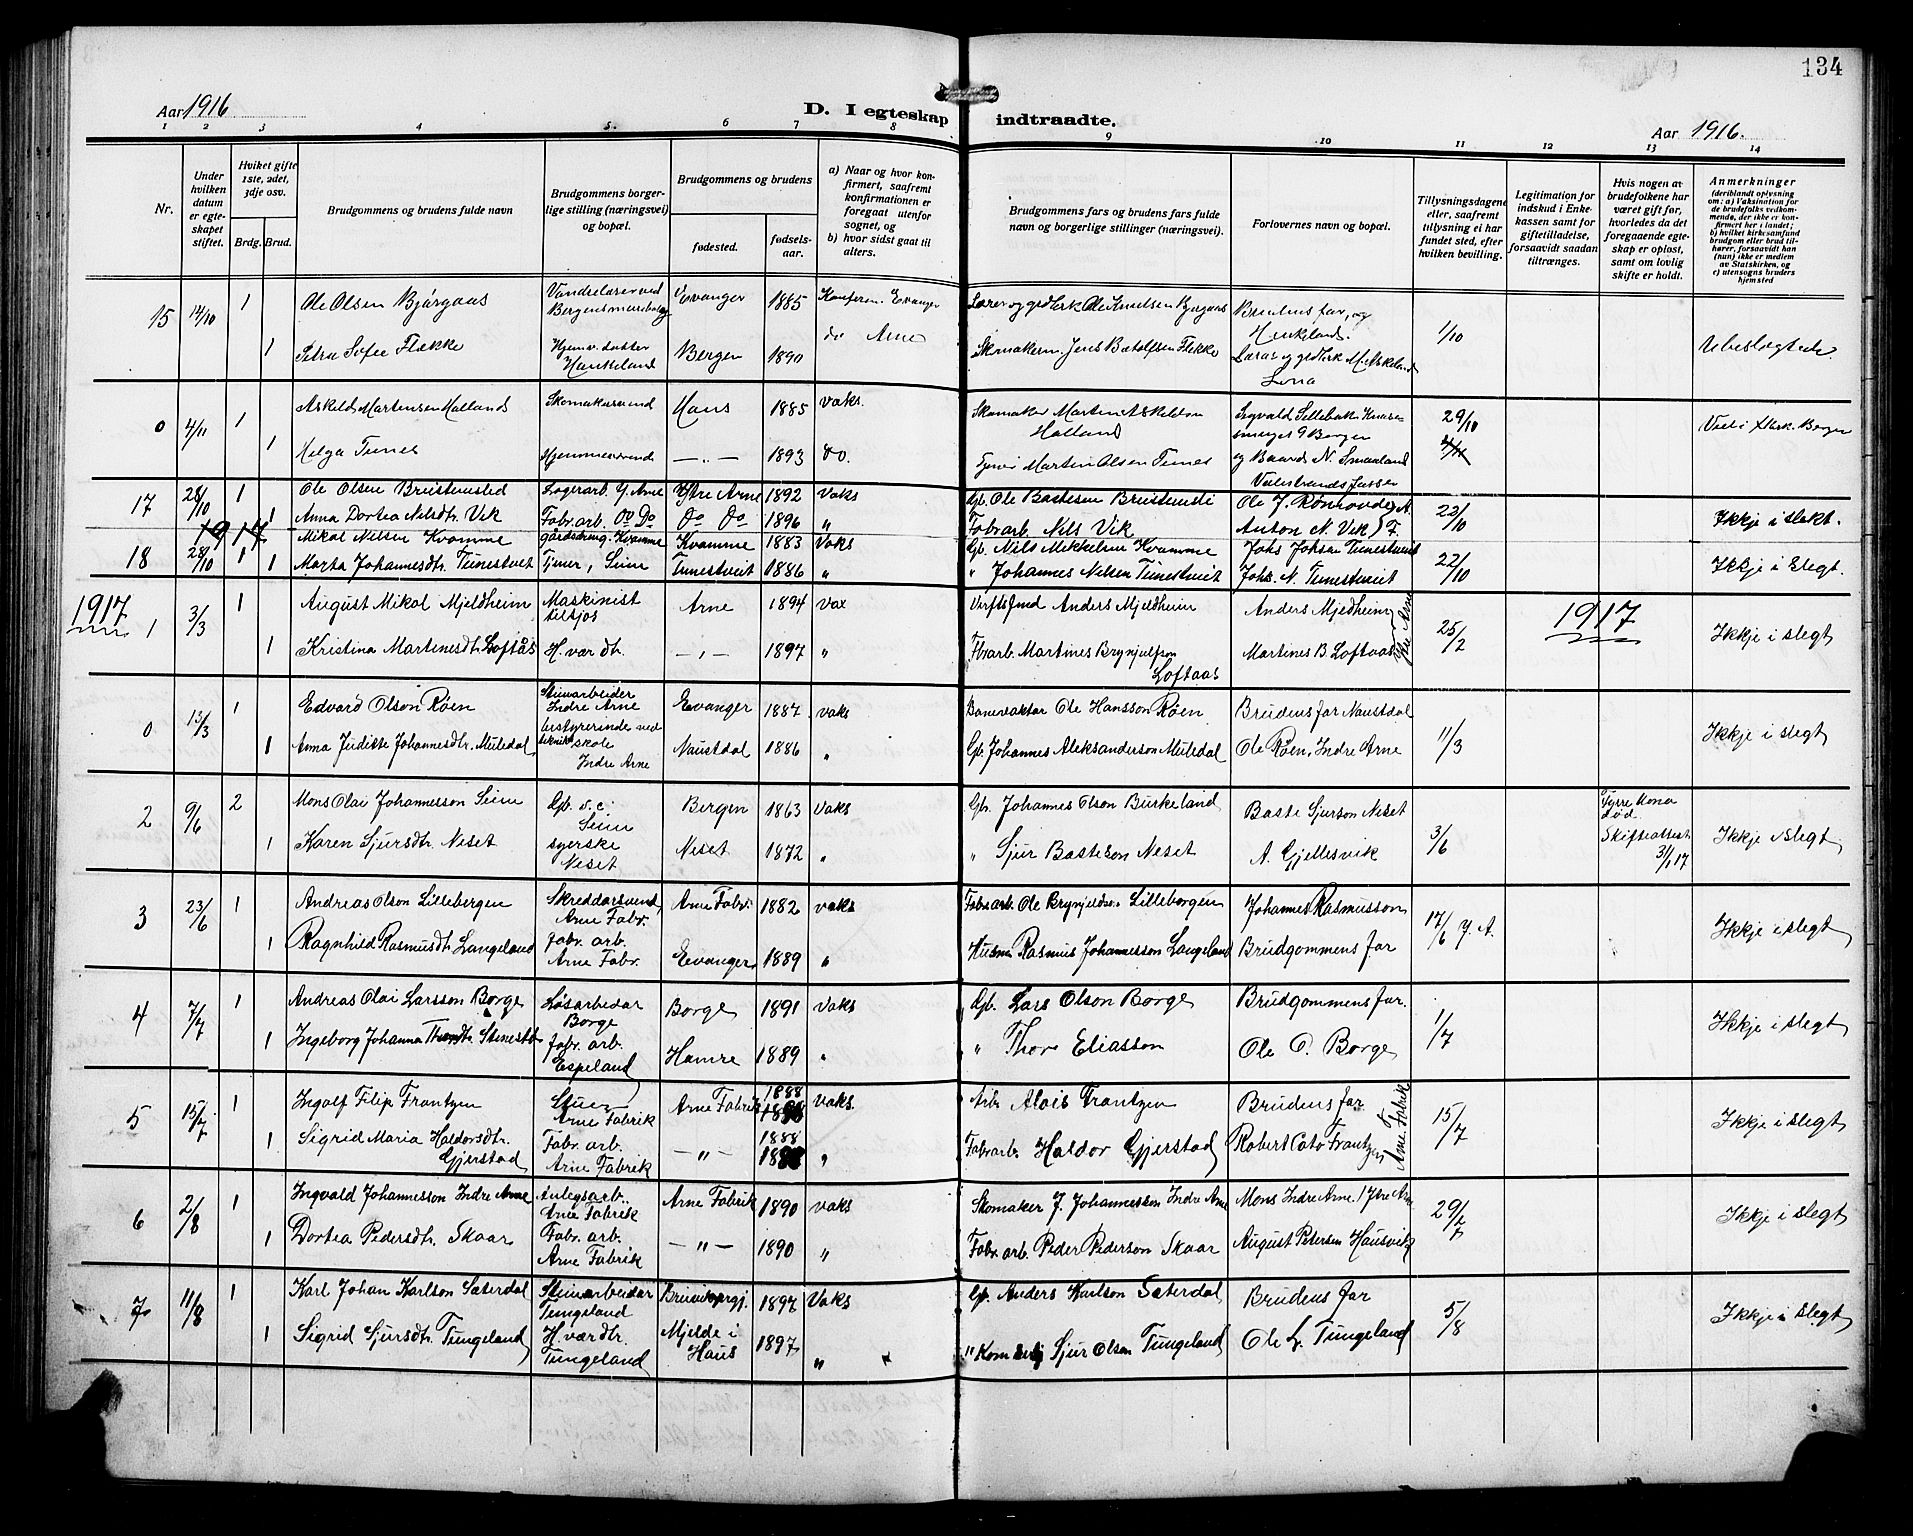 134
Aar 1916
D. I egteskap indtraadte.
Aar 1916.
1 2 3 4 5 6 7 8 9 10 11 12 13 14
Nr.
Under hvilken datum er egteskapet stiftet.
Hviket gifte 1ste, 2det, 3dje osv.
Brdg. Brud.
Brudgommens og brudens fulde navn
Brudgommens borgerlige stilling (næringsvei) og bopæl.
Brudgommens og brudens
fødested.
fødselsaar.
a) Naar og hvor konfirmert, saafremt konfirmationen er foregaat utenfor sognet, og
b) hvor sidst gaat til alters.
Brudgommens fars og brudens fars fulde navn og borgerlige stillinger (næringsvei).
Forlovernes navn og bopæl.
Tillysningsdagene eller, saafremt tillysning ei har fundet sted, efter hvilken bevilling.
Legitimation for indskud i Enkekassen samt for giftetilladelse, forsaavidt saadan tiltrænges.
Hvis nogen av brudefolkene har været gift før, hvorledes da det foregaaende egteskap er opløst, samt om lovlig skifte er holdt.
Anmerkninger
(deriblandt oplysning om: a) Vaksination for de brudefolks vedkommende, der ikke er konfirmert her i landet; b) hvilket kirkesamfund brudgom eller brud tilhører, forsaavidt han (hun) ikke er medlem av Statskirken, og c) utensogns bruders hjemsted
15 14/10 1 Ole Olsen Bjørgaas Vandrelærer ved Evanger 1885 Konferm. Evanger Lærer og grdbrk Ole Knudsen Bjørgaas Brudens far, og
Haukeland. 1/10
1 Petra Sofie Flække Hjemv. datter Haukeland Bergen 1890 do Arne Skomakerm. Jens Flekke Ubeslegtede
0 4/11 1 Askeld Martensen Halland Skomakersvend Haus 1885 vaks. Skomaker Martin Askelsen Halland 29/10
1 Helga Tunes Hjemmeværend — „ — 1893 do. Martin Olsen Tunes og Baard N. Smaaland
17 28/10 1 Ole Olsen Brustunsted Lagerarb. Y. Arne Ytre Arne 1892 Vaks Gb. Ole Bastesen 22/10
1 Anna Dortea Nilsdtr. Vik Fabr. arb. Do Do Do Do 1896 „ Fabrarb. Nils Vik Anton N. Vik Ikkje i slekt.
1917
18 28/10 1 Mikal Nilsen Kvamme gårdsdreng. Kvamme Kvamme 1883 Vaks Gb. Nils Mikkelsen Kvamme Johs Johsen Tunestveit 22/10
1 Marta Johannesdtr. Tunestvet Tjener, Seim Tunestveit 1886 „ „ Johannes Nilsen Tunestveit Johs. N. Tunestveit Ikkje i Slegt.
1917 1917
1 3/3 1 August Mikal Mjeldheim Maskinist tilsjøs Arne 1894 Vax Anders Mjeldheim Anders Mjeldheim Ytre Arne 25/2
1 Kristina Martinesdtr Loftås H. vær dtr. — „ — 1897 „ Fbrarb. Martines Brynjulfson Loftaas Martines B. Loftaas Ikkje i slegt
0 13/3 1 Edvard Olson Røen Stenarbeider Indre Arne Evanger 1887 vaks Banevaktar Ole Hansson Røen Brudens far Naustdal 11/3
1 Anna Judikte Johannesdtr. Muledal bestyrerinde ved skole Indre Arne Naustdal 1886 „ Gb. Johannes Aleksanderson Muledal Ole Røen, Indre Arne Ikkje i slegt
2 9/6 2 Mons Olai Johannesson Seim Gb. Seim Bergen 1863 Vaks Gbr. Johannes Olson Burkeland Baste Sjurson Neset 3/6 Fyrre Kona død.
1 Karen Sjursdtr. Neset syerske Neset Neset 1872 „ „ Sjur Basteson Neset A. Gjellesvik Skifteattest 31/1 17 Ikkje i slegt
3 23/6 1 Andreas Olson Lillebergen Skreddarsvend Arne Fabr. Arne Fabr. 1882 vaks Fabrarb. Ole Brynjelds. Lillebergen Johannes Rasmusson 17/6 Y. A.
1 Ragnhild Rasmusdtr. Langeland fabr. arb. Arne Fabr. Evanger 1889 „ Husm Rasmus Johannesson Langeland Brudgommens far Ikkje i slegt
4 7/7 1 Andreas Olai Larsson Borge Løsarbeidar Borge Borge 1891 Vaks Gb. Lars Olson Borge Brudgommens far. 1/7
1 Ingeborg Johanna fabr. arb. Espeland Hamre 1889 „ „ Thor Eliasson Ole O. Borge Ikkje i slegt
5 15/7 1 Ingolf Filip Frantzen Stuer Arne Fabrik Arne Fabrik 1888 Vaks Arb. Alois Frantzen Brudens far Arne Fabrik 15/7
1 Sigrid Maria Haldorsdtr. Gjerstad Fabr. arb. Arne Fabrik — „ — 1888 „ Fabrarb. Haldor Gjerstad Robert Cato Frantzen Ikkje i slegt
6 2/8 1 Ingvald Johannesson Indre Arne Anlegsarb. Arne Fabrik Arne Fabrik 1890 vaks Skomaker J. Johannessen Indre Arne Mons Indre Arne 29/7
1 Dortea Pedersdtr. Skaar Fabr. arb. Arne Fabrik — „ — 1890 „ Fabr. arb. Peder Pederson Skaar August Petersen Hausvik Ikkje i slegt
7 11/8 1 Karl Johan Karlson Sæterdal Stenarbeidar Tungeland 1897 Vaks Gb. Anders Karlson Sæterdal Brudens far 5/8
1 Sigrid Sjursdtr. Tungeland H. vær dtr. Tungeland Mjelde i Haus 1897 „ „ Sjur Olson Tungeland Ole L. Tungeland Ikkje i slegt